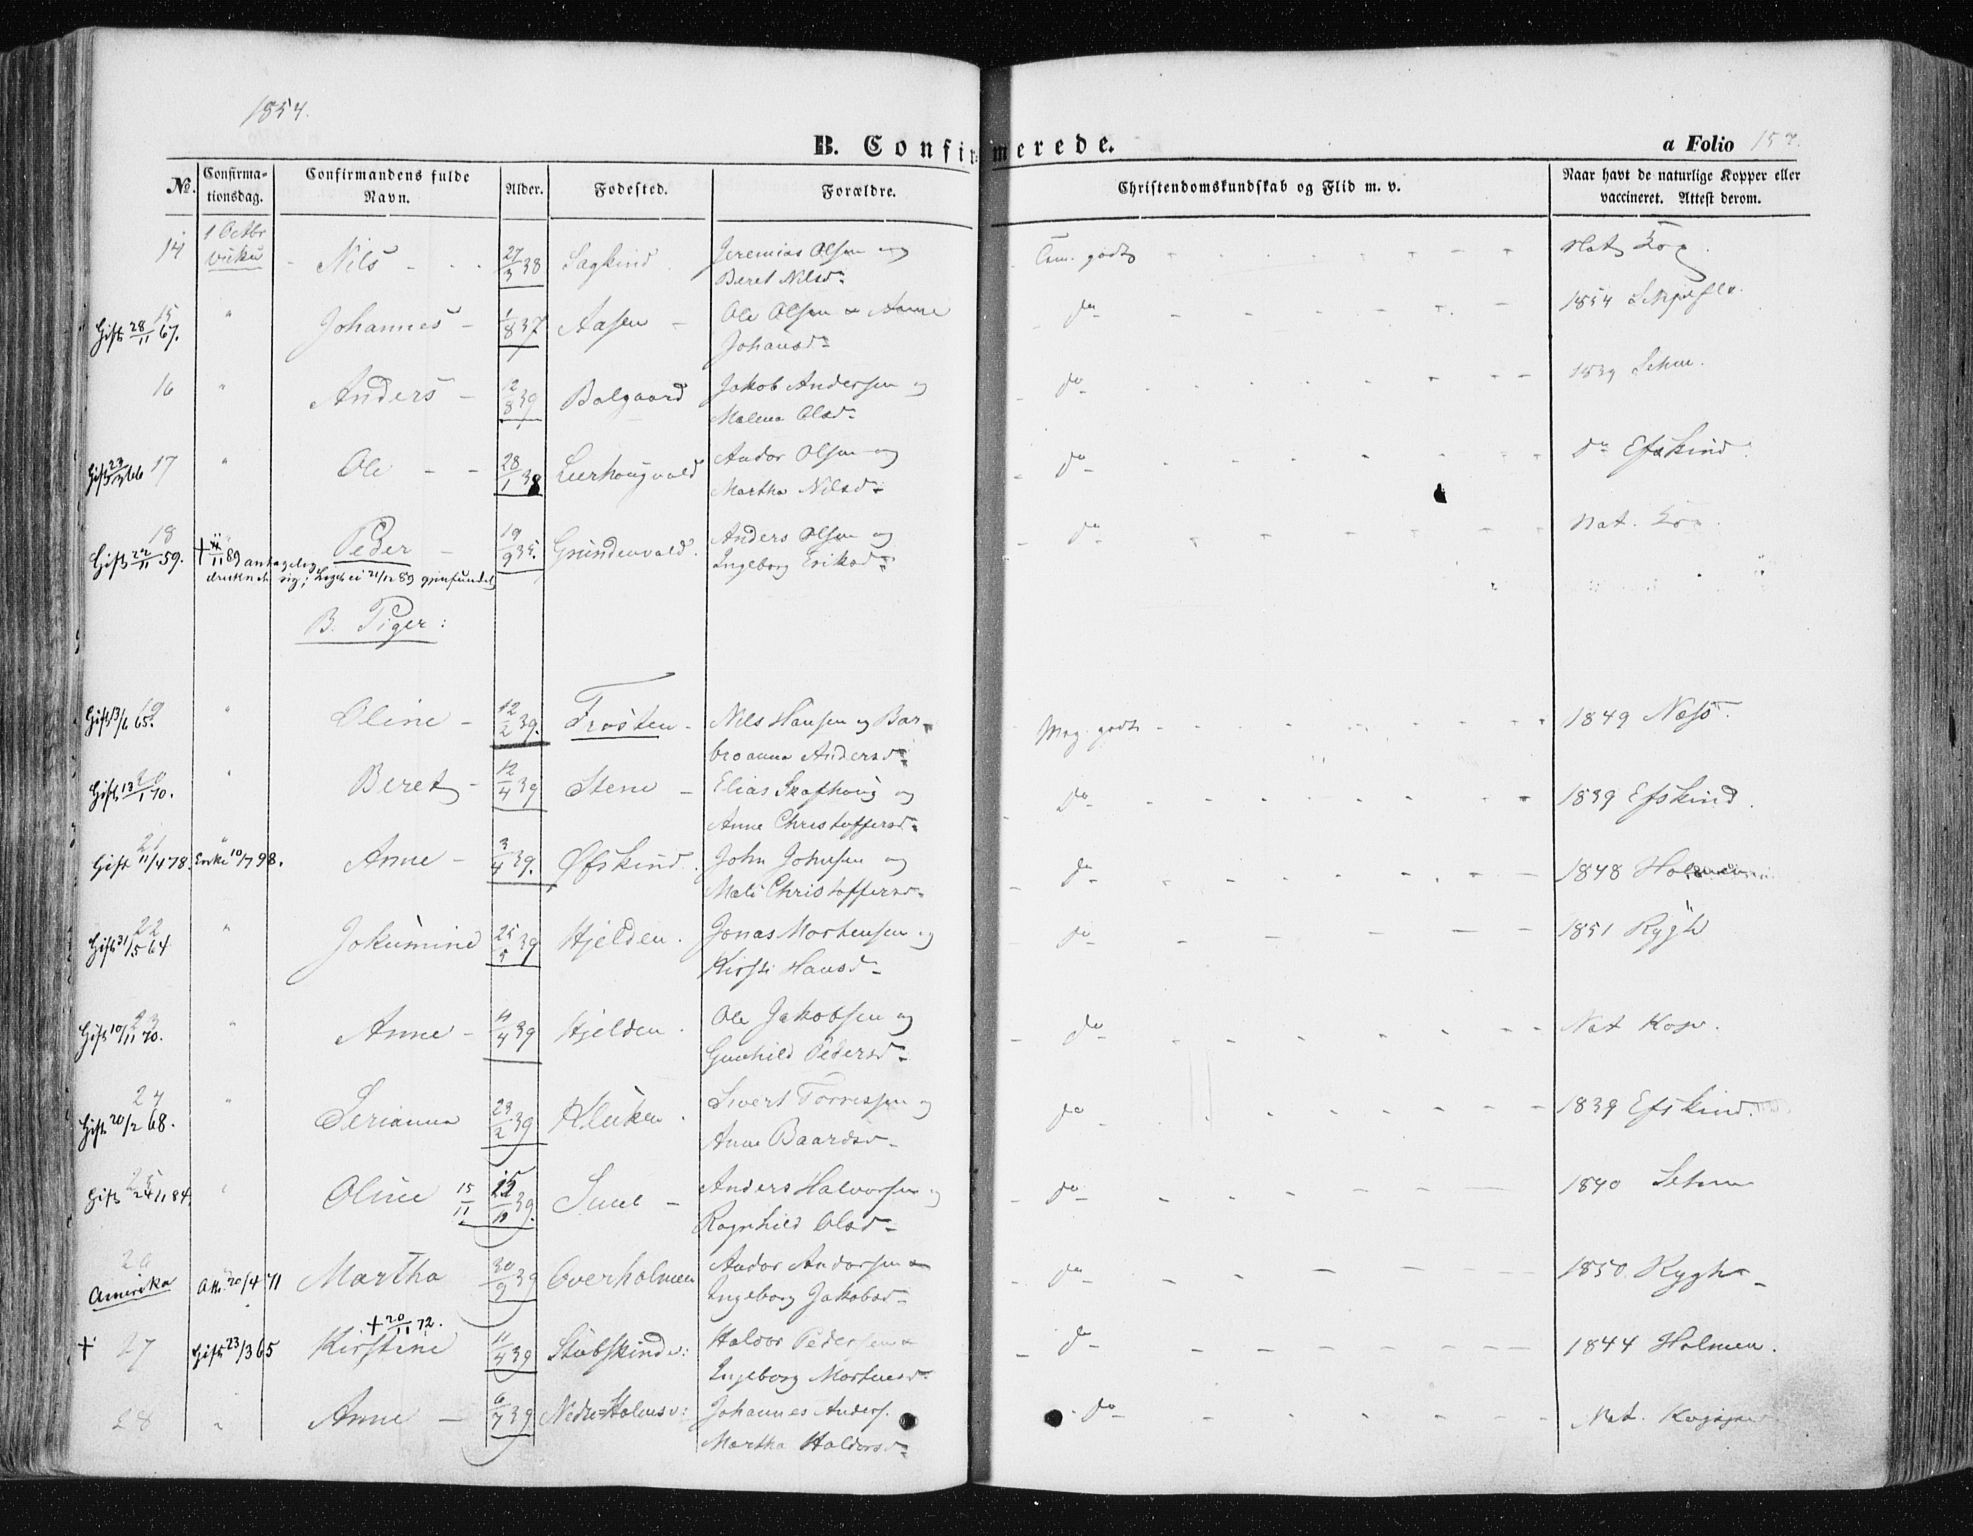 1854.
B. Confirmerede.
a Folio 157.
No. Confirmationsdag. Confirmandens fulde Navn. Alder. Fødested. Forældre. Christendomskundskab og Flid m. v. Naar havt de naturlige Kopper eller vaccineret. Attest derom.
14 1 Octbr Nils - - - 27/3 38 Jeremias Olsen og godt Nat Kop.
Vuku Beret Nilsd-
Gift 28/11 67. 15 " Johannes - 1/8 37 Aasen - Ole Olsen & Anne do - 1854
Johansd-
16 " Anders - 12/8 39 Balgaard Jakob Andersen og do - 1839
Malena Olsd-
17 " Ole - - 28/1 38 Andor Olsen og do - do Efskind.
Martha Nilsd-
Gift 22/11 59. 18 Peder - 19/9 35. Grundenvald. Anders Olsen og do - Nat. Kop.
89 antagelig Ingeborg Eriksd-
B. Piger:
Gift 13/6 65. 19 " Oline - 12/2 39. Frosten - Nils Hansen og Bar- Meg. godt - 1849 Næss.
broanna Andersd-
Gift 13/1 70. 20 " Beret - 12/4 39 Stene - Elias Skafhoug og do - 1839 Efskind.
Anne Christoffersd-
Gift 11/4 78. 21 " Enke 10/7 98. Anne - 3/4 39. Øfskind. John Johnsen og do - 1848 Holmen
Mali Christoffersd-
Gift 31/5 64 22 " Jokumine 25/5 39 Hjelden. Jonas Mortensen og do - 1851 Rygh
Kirsti Hansd-
Gift 10/11 70. 23 " Anne - 4/4 39 Hjelden. Ole Jakobsen og do - Nat Kop.
Gunhild Pedersd-
Gift 20/2 68. 24 " Serianna 23/2 39 Kluken. Sivert Torressen og do - 1839 Efskind.
Anne Baardsd-
Gift 24/1 84. 25 " Oline 15/11 39. Anders Halvorsen og do - 1840
Ragnhild Olsd-
26 Amerika Att. 20/4 71 Martha 30/9 39 Overholmen Andor Andorsen & do - 1850 Rygh -
Ingeborg Jakobsd-
† 20/11 72.
† 27 Gift 23/3 65 Kirstine 11/4 39 Stubskind v: Haldor Pedersen & do - 1844 Holmen.
Ingeborg Mortensd-
28 " Anne - 6/7 39. Nedre Holmsv: Johannes Anders. do - Nat.
Martha Haldorsd-